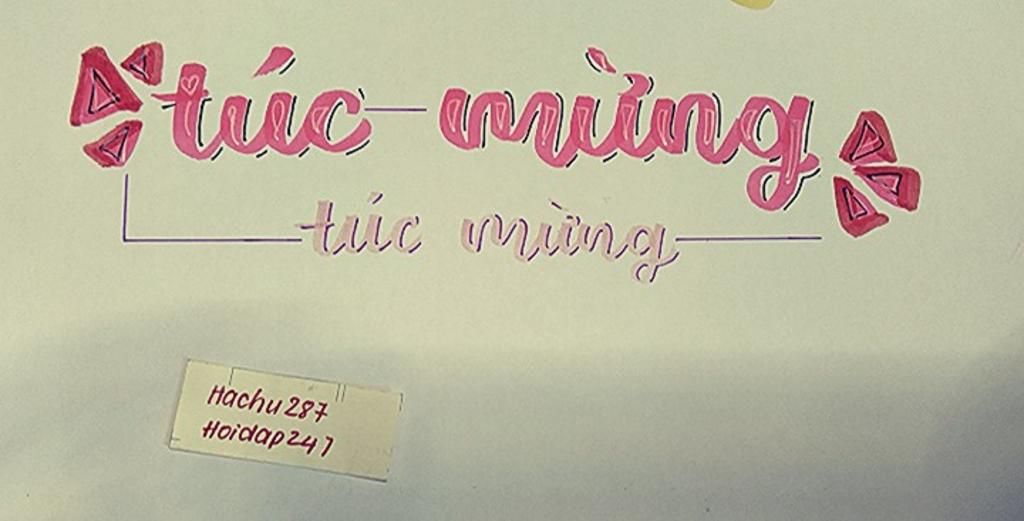 túc mừng
túc mừng
Hachu287
Hoidap247